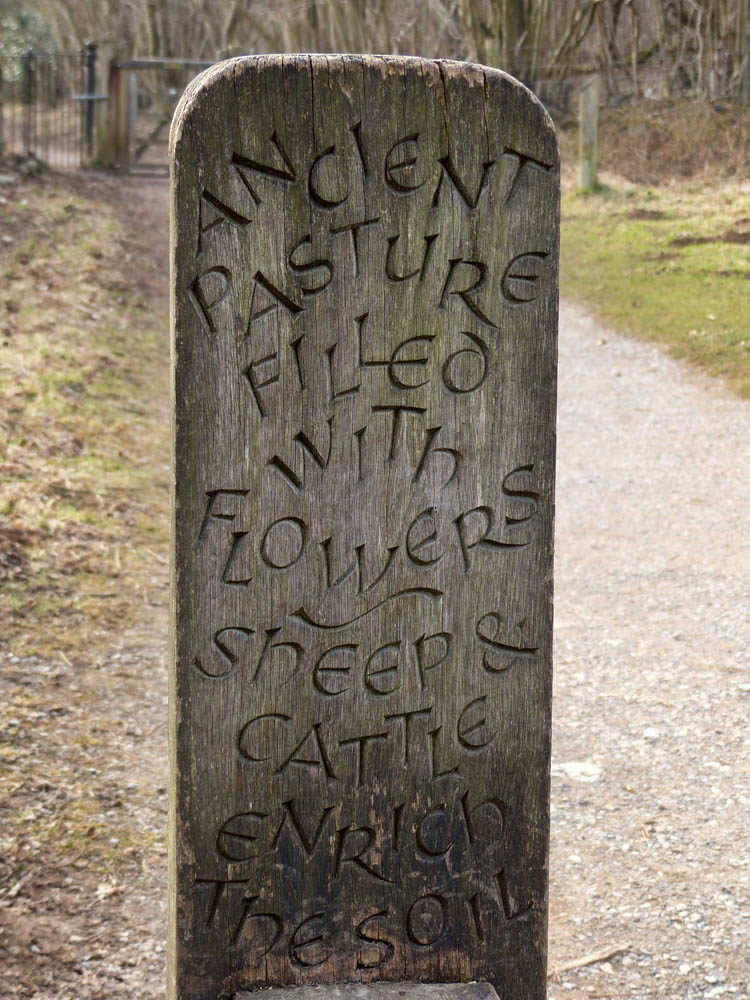 ANCIENT
PASTURE
FILLED
WITH
FLOWERS
SHEEP &
CATTLE
ENRICH
THE SOIL